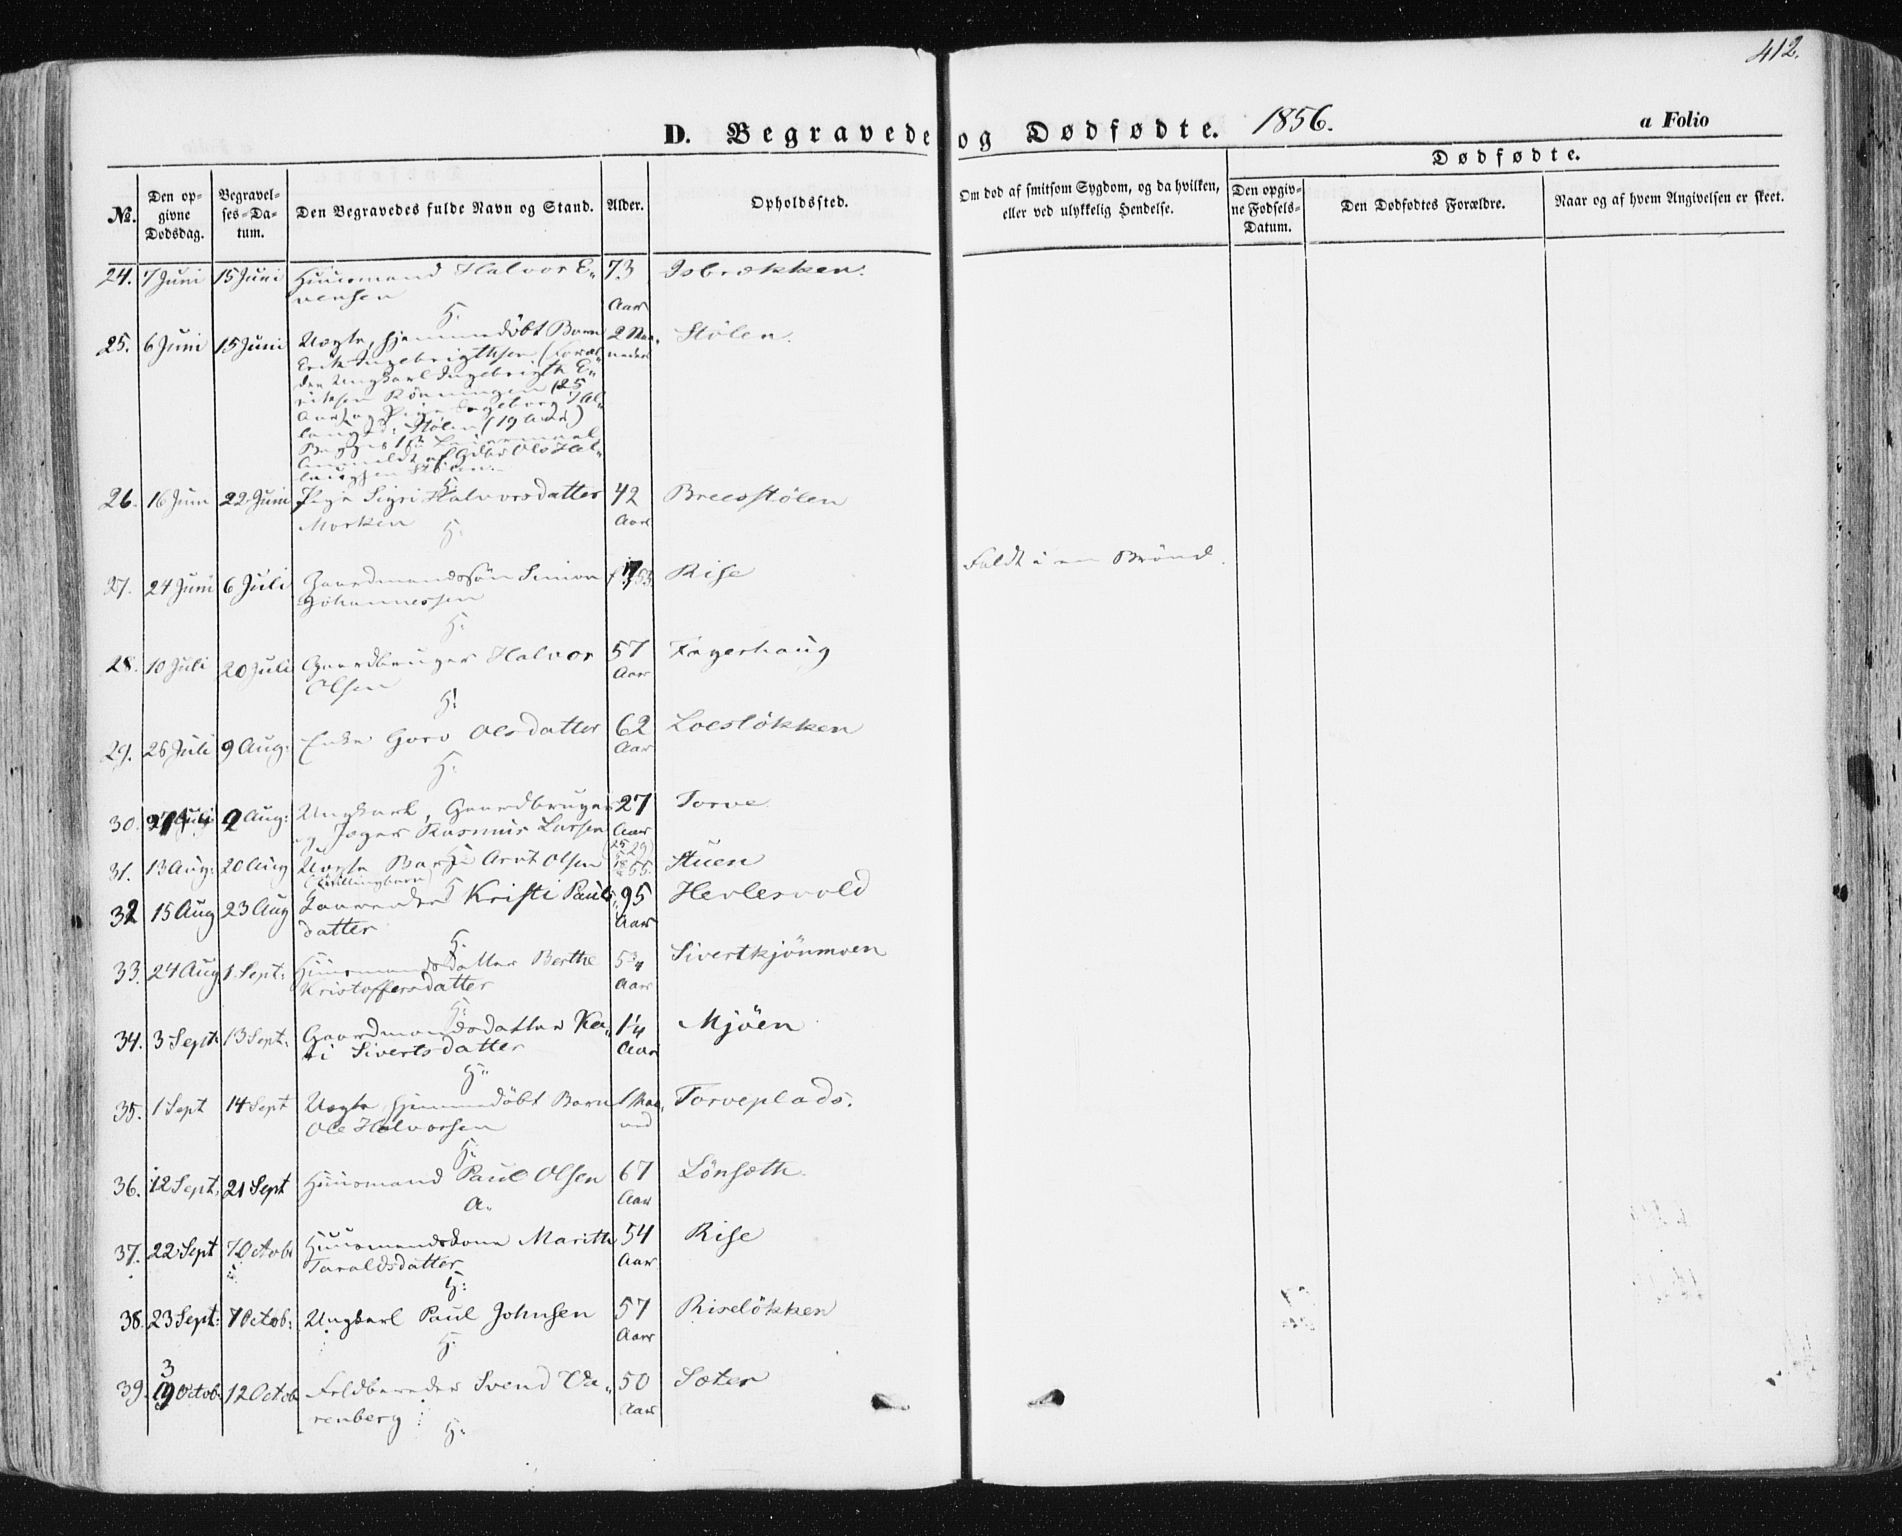 412.
D. Begravede og Dødfødte. 1856. a Folio
No. Den opgivne Dødsdag. Begravelses-Datum. Den Begravedes fulde Navn og Stand. Alder. Opholdssted. Om død af smitsom Sygdom, og da hvilken, eller ved ulykkelig Hendelse.
Dødfødte.
Den opgivne Fødsels-Datum. Den Dødfødtes Forældre. Naar og af hvem Angivelsen er skeet.
24. 7 Juni 15 Juni Huusmand Halvor E- 73 Isbrekken.
vensen Aar
H.
25. 6 Juni 15 Juni Uægte, hjemmedøbt Barn 2 Maa- Stölen.
Erik Ingebrigtsen (Foræl- neder
dre Ungkarl Ingebrigt E-
riksen Rönningen (25
Aar) og Pige Ingeborg Hal-
Stölen (19 Aar)
Begges 1ste Leiermaal
Anmeldt af Ole Hal-
Stölen.
H.
26. 16 Juni 22 Juni Pige Sigri Halvorsdatter 42 Breesstölen
Morken Aar
H.
27. 24 Juni 6 Juli Gaardmandssön Simon Rise Faldt i en Brönd.
Johannessen
H.
28. 10 Juli 20 Juli Gaardbruger Halvor 57 Fagerhaug
Olsen Aar
H.
29. 26 Juli 9 Aug: Enke Goro Olsdatter 62 Loeslökken
Aar
H.
30. 2 Aug: Ungkarl, Gaardbruger 27 Torve
og Jæger Rasmus Larsen Aar
H.
31. 13 Aug: 20 Aug Uægte Barn Arnt Olsen Stuen
(Tvillingbarn) H
32 15 Aug 23 Aug Kristi Pauls- 95 Hevlesvold
datter Aar
H.
33. 24 Aug 1 Sept: Huusmandsdatter Berthe 5 3/4 Sivertkjönmoen
Kristoffersdatter Aar
H.
34. 3 Sept 13 Sept: Gaardmandsdatter Ka- 1 1/4 Mjöen
ri Sivertsdatter Aar
H.
35. 1 Sept 14 Sept Uægte hjemmedöbt Barn 1 Maa- Torveplads.
Ole Halvorsen ned
H.
36. 12 Sept. 21 Sept Huusmand Paul Olsen 67 Lönsæth.
A. Aar
37. 22 Sept 7 Octob: Huusmandskone Marith 54 Rise
Taraldsdatter Aar
H:
38. 23 Sept: 7 Octob: Ungkarl Paul Johnsen 57 Riselökken
Aar
H.
3
39. Octob: 12 Octob Feldbereder Svend Va- 50 Sæter
renberg Aar
H.